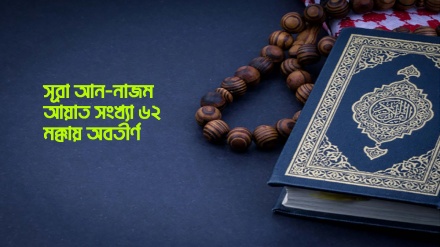 সূরা আন-নাজম
আয়াত সংখ্যা ৬২
মক্কায় অবতীর্ণ